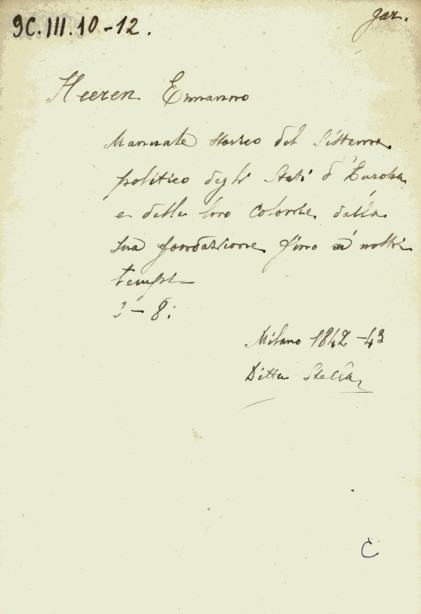 9C.III.10-12.
gar.
Heeren Ermanno
Manuale storico del Sistema
politico degli Stati d'Europa
e delle loro Colonie, dalla
sua fondazione fino a' nostri
tempi
3-8:
Milano 1842-43
Ditta Stella
C